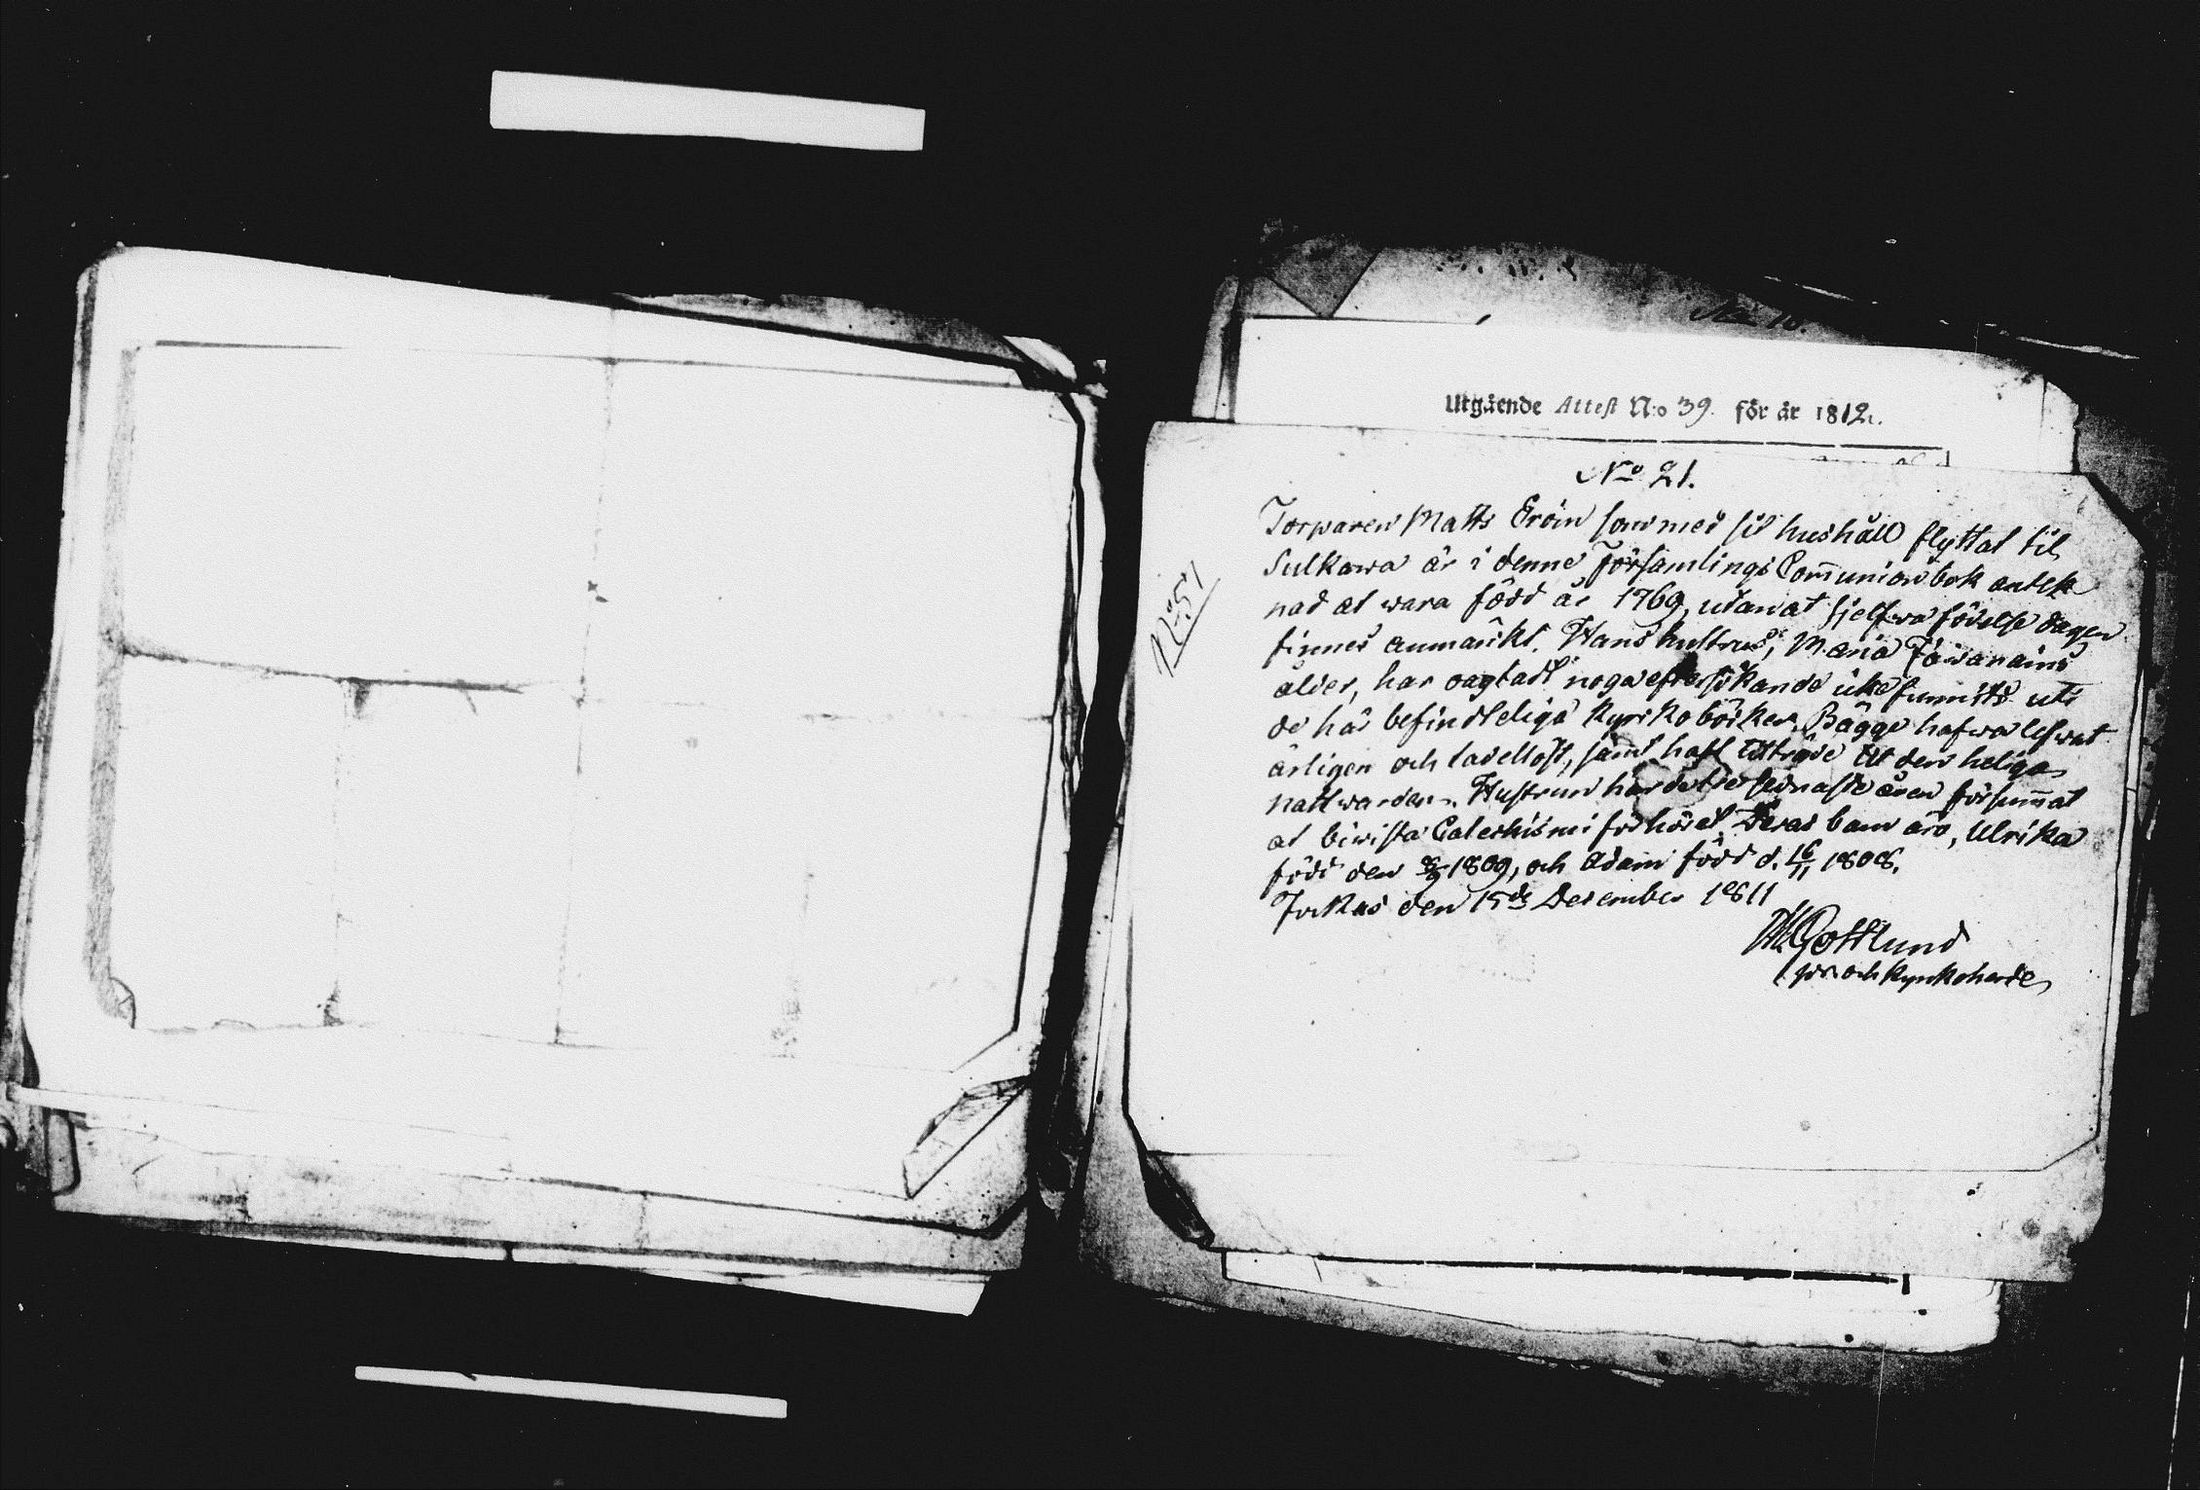 Utgående Attest N:o 39. för år 1812.
No 21.
No 51
Torparen Matts Eröin som med sit hushåll flyttat til
Sulkawa är i denne Församlings Com̅union bok antek
nad at wara född år 1769, utan at sjelfwa födelse dagen
finnes anmärkt. Hans hustrus, Maria
ålder, har oagtadt noga efter sökande icke funnits uti
de här befindteliga kyrko böcker. Bägge hafwa lefwat
ärligen och ladellöst, samt haft tilträde til den heliga
nattwarden. Hustrun har de sednaste åren försum̅at
at biwista Catechismi förhöret. Deras barn äro, Ulrika
född den 1809, och Adam född d. 16/11 1808.
Jockas den 15de December 1811
Gottlund
och Kyrkoherde